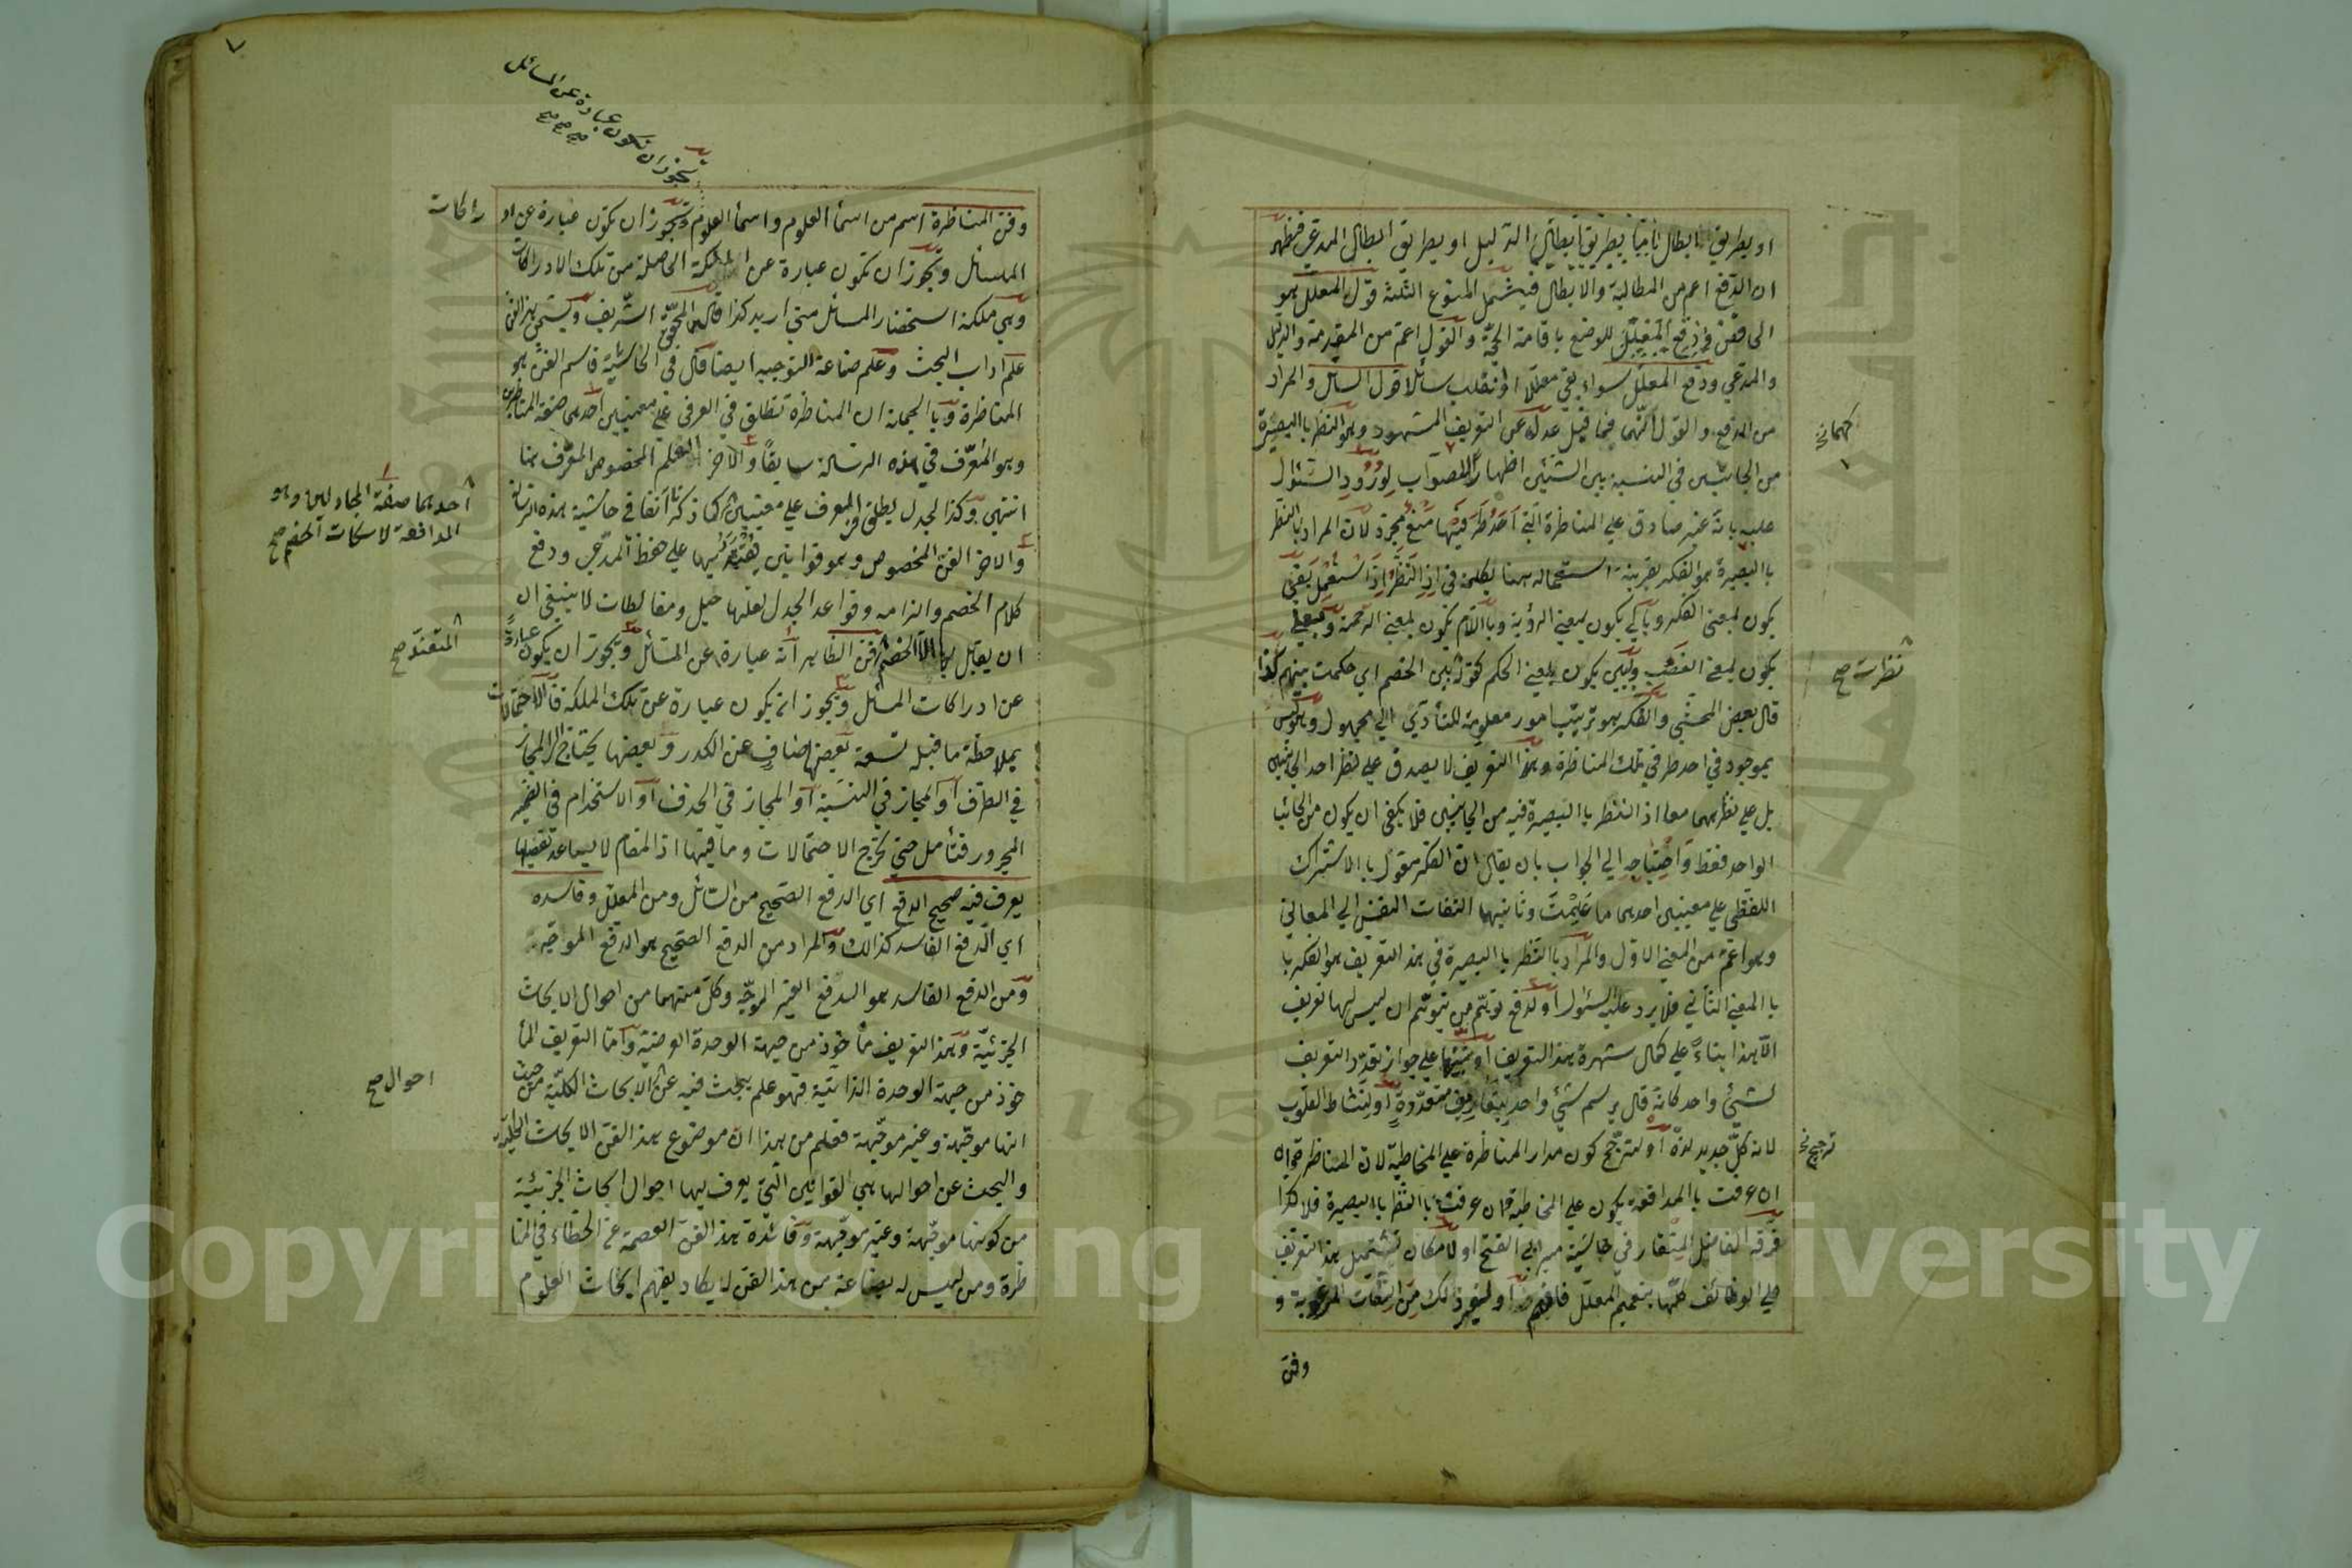 او بطريق ابطال ثانيا بطريق ابطال الدليل او بطريق ابطال المدعى فظهر
ان الدفع اعم من المطالبة والابطال فيشمل المنوع الثلثة قول المعلل هو
دفع المعلل للوضع باقامة الحجة والقول اعم من المقدمة والدليل
والمدعى ودفع المعلل سواء بقى معللا او انقلب سائلا قول السائل والمراد
من الدفع والقول فما قيل عدل عن التعريف المشهور وهو النظر باالبصيرة
من الجانبين فى النسبة بين الشيئين اظهارا للصواب لورود السئوال
عليه بانه غير صادق على المناظرة التى احد طرفيها منع مجرد لان المراد باالنظر
باالبصيرة هو الفكر بقرينة استعماله ههنا بكلمة فى اذ النظر اذا استعمل بفى
يكون لمعنى الفكر وبالى يكون بمعنى الرؤية وباللام يكون لمعنى الرحمة وبعلى
يكون لمعنى الغضب وببين يكون بمعنى الحكم كقوله بين الخصم اى حكمت بينهم كذا
قال بعض المحشى والفكر هو ترتيب امور معلومة للتأدى الى مجهول وهو ليس
بموجود فى احد طرفى تلك المناظرة وهذا التعريف لا يصدق على نظر احد الجانبين
بل على نظرهما معا اذ النظر باالبصيرة فيه من الجانبين فلا يكفى ان يكون من الجانب
الواحد فقط واحتياجه الى الجواب بان يقال ان الفكر مقول باالاشتراك
اللفظى على معنيين احدهما ما علمت وثانيهما التفات النفس الى المعانى
وهو اعم من المعنى الاول والمراد باالنظر باالبصيرة فى هذ التعريف هو الفكر با
باالمعنى الثانى فلا يرد عليه السئوال او لدفع توهم من يتوهم ان ليس لها تعريف
الا هذا بناء على كمال شهرة هذ التعريف او تنبيها على جواز تعدد التعريف
لشئ واحد كانه قال يرسم شئ واحد بتعاريف متعددة او لتنشاط القلوب
لانه كل جديد لذة او لترجح كون مدار المناظرة على المخاطبة لان المناظرة
ان عرفت باالمدافعة يكون على المخاطبة وان عرفت باالنظر باالبصيرة فلا كذا
قرره الفاضل فى حاشية مير ابى الفتح او لامكان تشتميل هذ التعريف
على الوظائف كلها بتعميم المعلل فافهم او لغير ذلك من النكات المرغوبة و
وفن
ترجيح
نظرات صح
٧
وفن المناظرة اسم من اسمأ العلوم واسمأ العلوم يجوز ان يكون عبارة عن اد
راكات
يجوز ان تكون عبارة عن المسائل
صح صح صح
المسائل ويجوز ان تكون عبارة عن الملكة الحاصلة من تلك الادراكات
وهى ملكة استحضار المسائل متى اريد كذا قال المحقق الشريف ويسمى هذ الفن
علم اداب البحث وعلم صناعة التوجيه ايضا قال فى الحاشية فاسم الفن هو
المناظرة وباالجملة ان المناظرة تنطلق فى العرف على معنيين احدهما صفة المناظرين
وهو المعرف فى هذه الرسالة سابقا والاخر العلم المخصوص المعرف هنا
انتهى وكذ الجدل يطلق فى العرف على معنيين كما ذكر آنفا فى حاشية هذه الرسالة
احدهما صفة المجادلين وهو
المدافعة لاسكات الخصم صح
والاخر الفن المخصوص وهو قوانين يقتدر بها على حفظ المدعى ودفع
كلام الخصم والزامه وقواعد الجدل بعضها حيل ومغالطات لا ينبغى ان
ان يقابل بها الا الخصم فن الظاهر انه عبارة عن المسائل ويجوز ان يكون عبارة
المتعند صح
عن ادراكات المسائل ويجوز انه يكون عبارة عن تلك الملكة فالاحتمالات
بملاحظة ما قبله تسعة بعضها صاف عن الكدر وبعضها يحتاج الى المجاز
فى الطرف او المجاز فى النسبة او المجاز فى الحذف او الاستخدام فى الضمير
المجرور فتأمل حتى تخرج الاحتمالات وما فيها اذ المقام لا يساعد تفصيلها
يعرف فيه صحيح الدفع اى الدفع الصحيح من السائل ومن المعلل وفاسده
اى الدفع الفاسد كذالك والمراد من الدفع الصحيح هو الدفع الموجه
ومن الدفع الفاسد هو الدفع الغير الموجه وكل منهما من احوال الابحاث
الجزئية وهذ التعريف مأ خوذ من جهة الوحدة العرضية واما التعريف المأ
خوذ من جهة الوحدة الذاتية فهو علم يبحث فيه عن الابحاث الكلية من حيث
احوال صح
انها موجهة وغير موجهة فعلم من هذا ان موضوع هذ الفن الابحاث الكلية
والبحث عن احوالها هى القوانين التى يعرف بها احوال ابحاث الجزئية
من كونها موجهة وغير موجهة وفائدة هذ الفن العصمة عن الخطاء فى المنا
ظرة ومن ليس له بضاعة من هذ الفن لا يكاد يفهم ابحاث العلوم
Copyright © King Saud University
1957